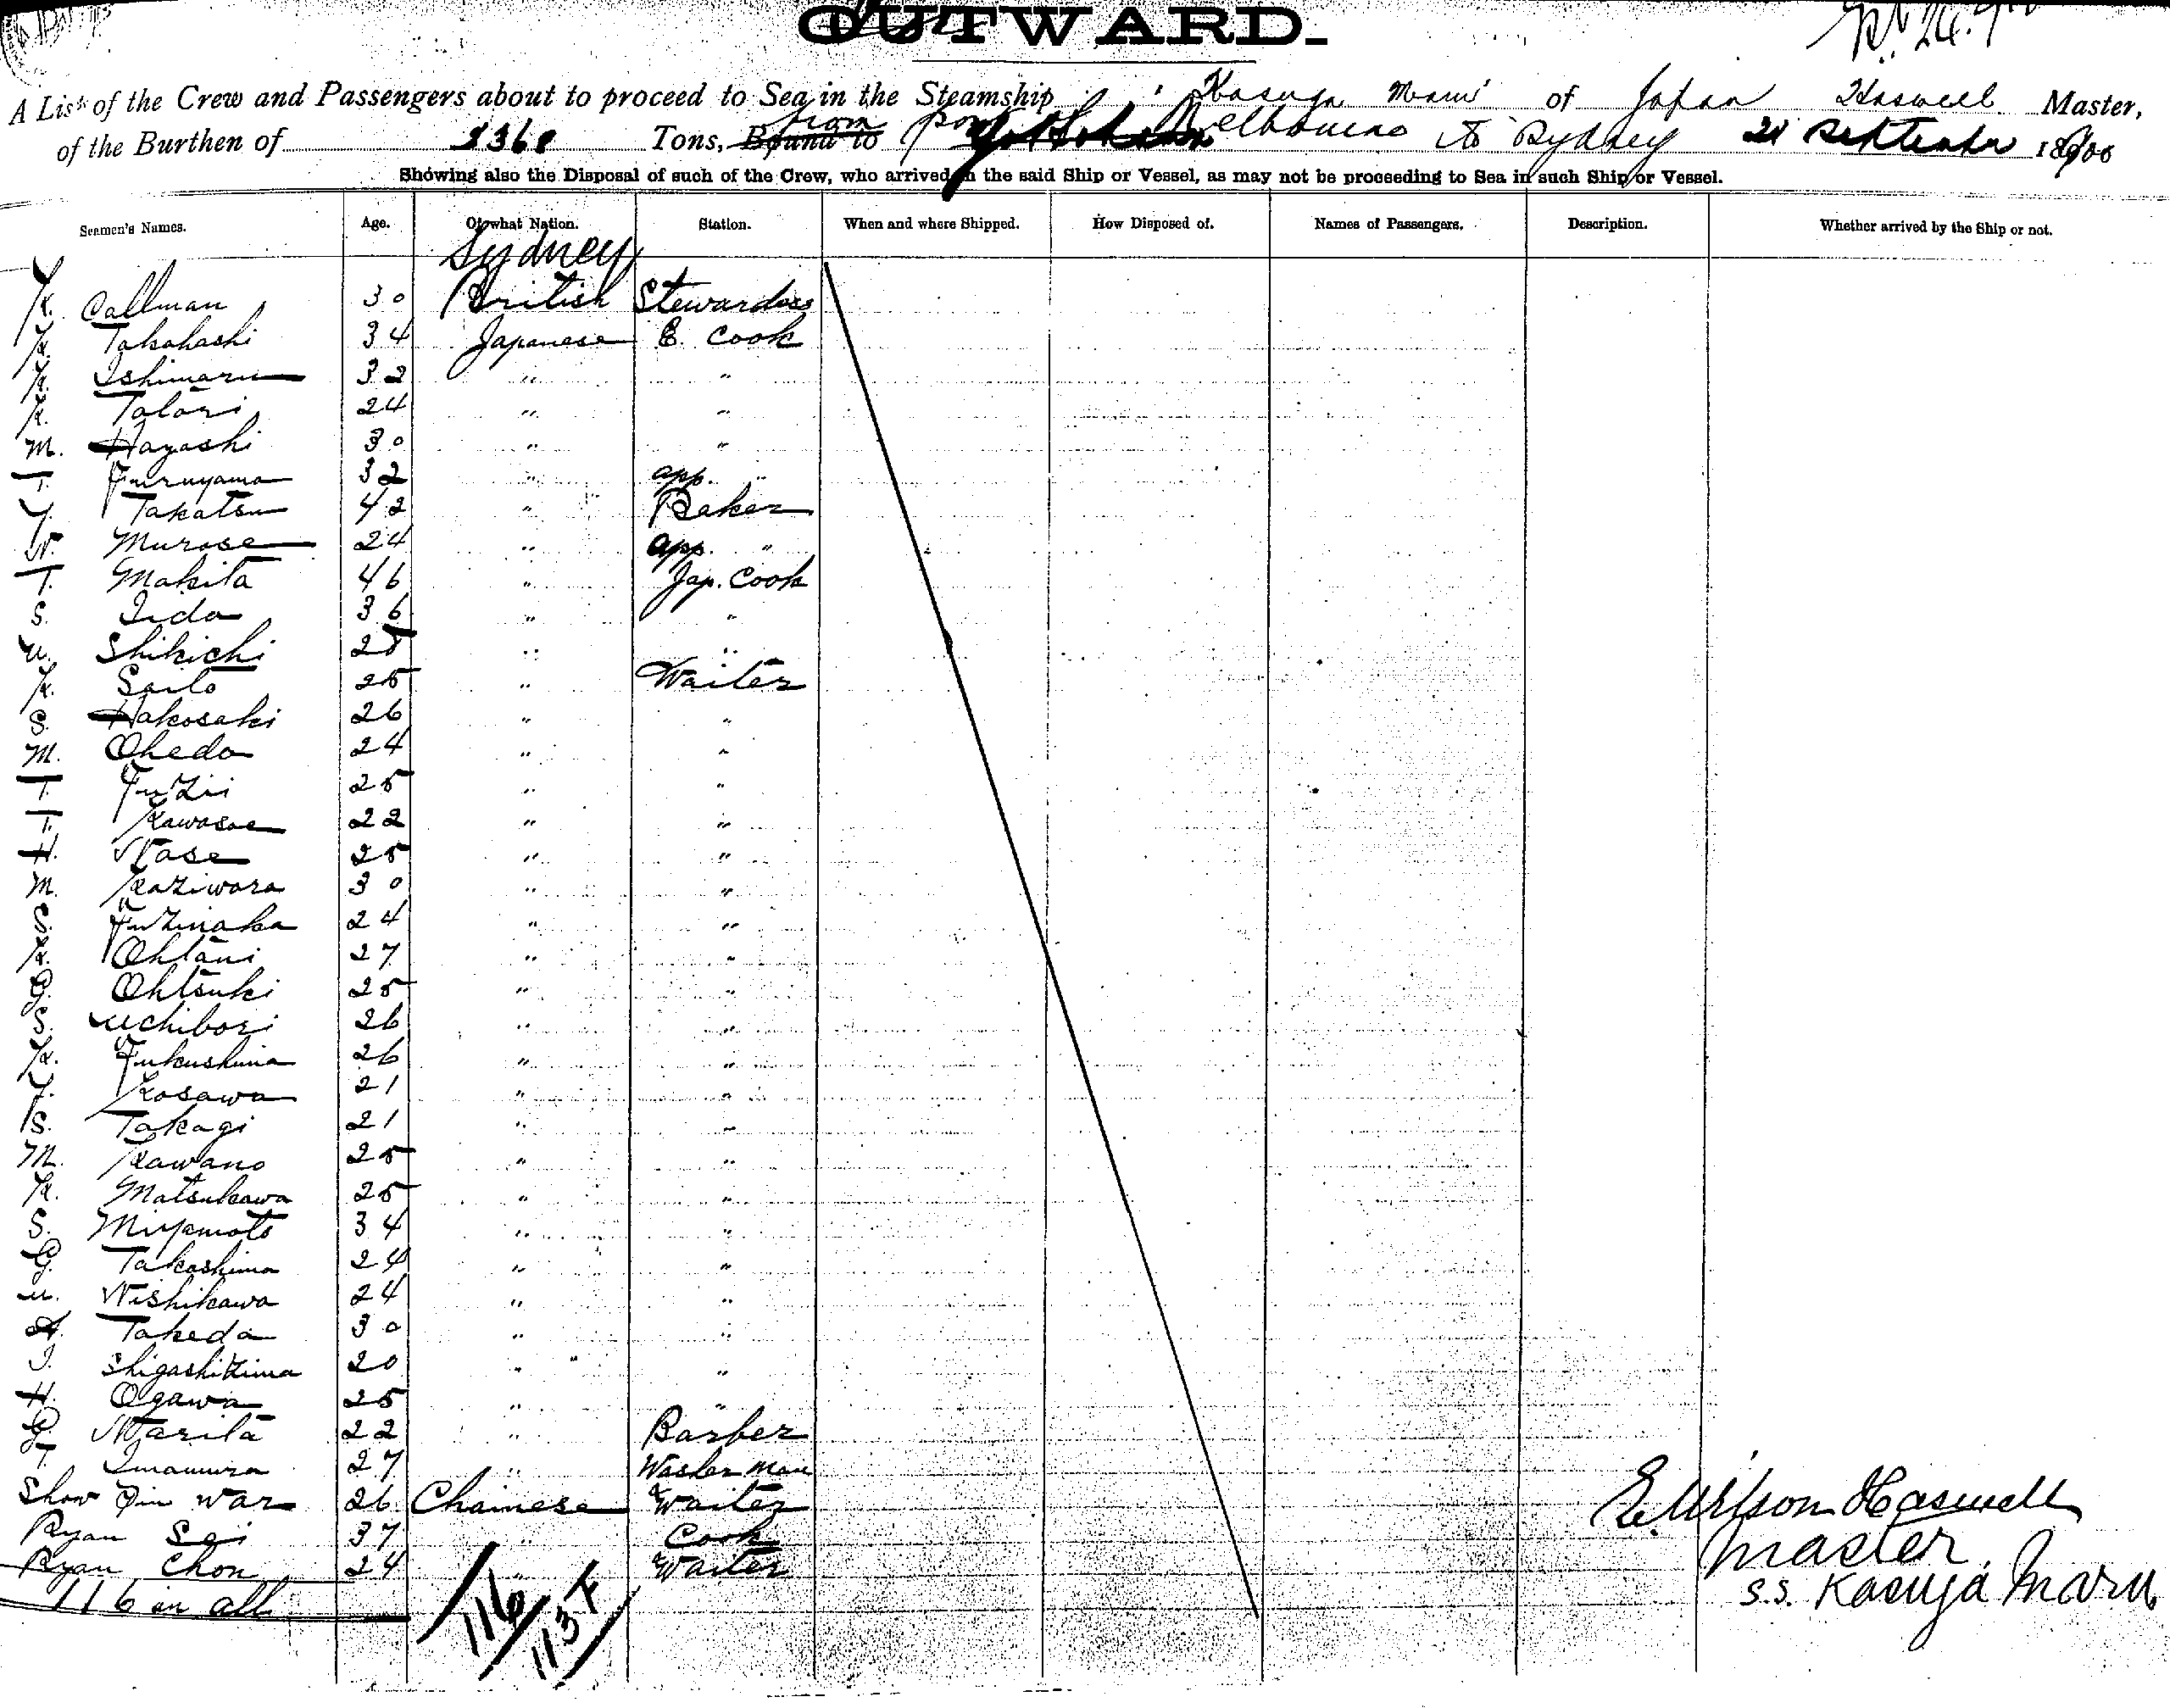 OUTWARD.
A List of the Crew and Passengers about to proceed to Sea in the Steamship "Kasuga Maru" of Japan Haswell Master,
of the Burthen of Tons, Bound to from Melbourne to Sydney 21 September 1900
Showing also the Disposal of such of the Crew, who arrived in the said Ship or Vessel, as may not be proceeding to Sea in such Ship or Vessel.
Seamen's Names. Age. Of what Nation. Station. When and where Shipped. How Disposed of. Names of Passengers. Description. Whether arrived by the Ship or not.
Sydney
K. Callman 30 British Stewardess
K. Takahashi 34 Japanese E. Cook
K. Ishimaru 32 " "
K. Tatari 24 " "
M. Hayashi 30 " "
T. Furuyama 32 " app. "
Y. Takatsu 42 " Baker
N. Murase 24 " app. "
T. Makita 46 " Jap. Cook
S. Iida 36 " "
U. Shikichi 25 " "
K. Saito 25 " Waiter
S. Hakosaki 26 " "
M. Okeda 24 " "
T. Fuzii 25 " "
T. Kawasoe 22 " "
H. Nase 25 " "
M. Kaziwara 30 " "
S. Fuzinaka 24 " "
K. Ohtani 27 " "
G. Ohtsuki 25 " "
S. Uchibori 26 " "
K. Fukushima 26 " "
Y. Kosawa 21 " "
S. Takagi 21 " "
M. Kawano 25 " "
K. Matsukawa 25 " "
S. Miyamoto 34 " "
G. Takashima 24 " "
U. Nishikawa 24 " "
A. Takeda 30 " "
I. Shigashizima 20 " "
H. Ogawa 25 " "
G. Narita 22 " Barber
T. Imamura 27 " Washer man
Show Qin War 26 Chainese Waiter
Ryan Sai 37 " Cook
Ryan Chon 24 " Waiter
116 in all
116
113 +
E. Wilson Haswell
Master
S.S. Kasuga Maru